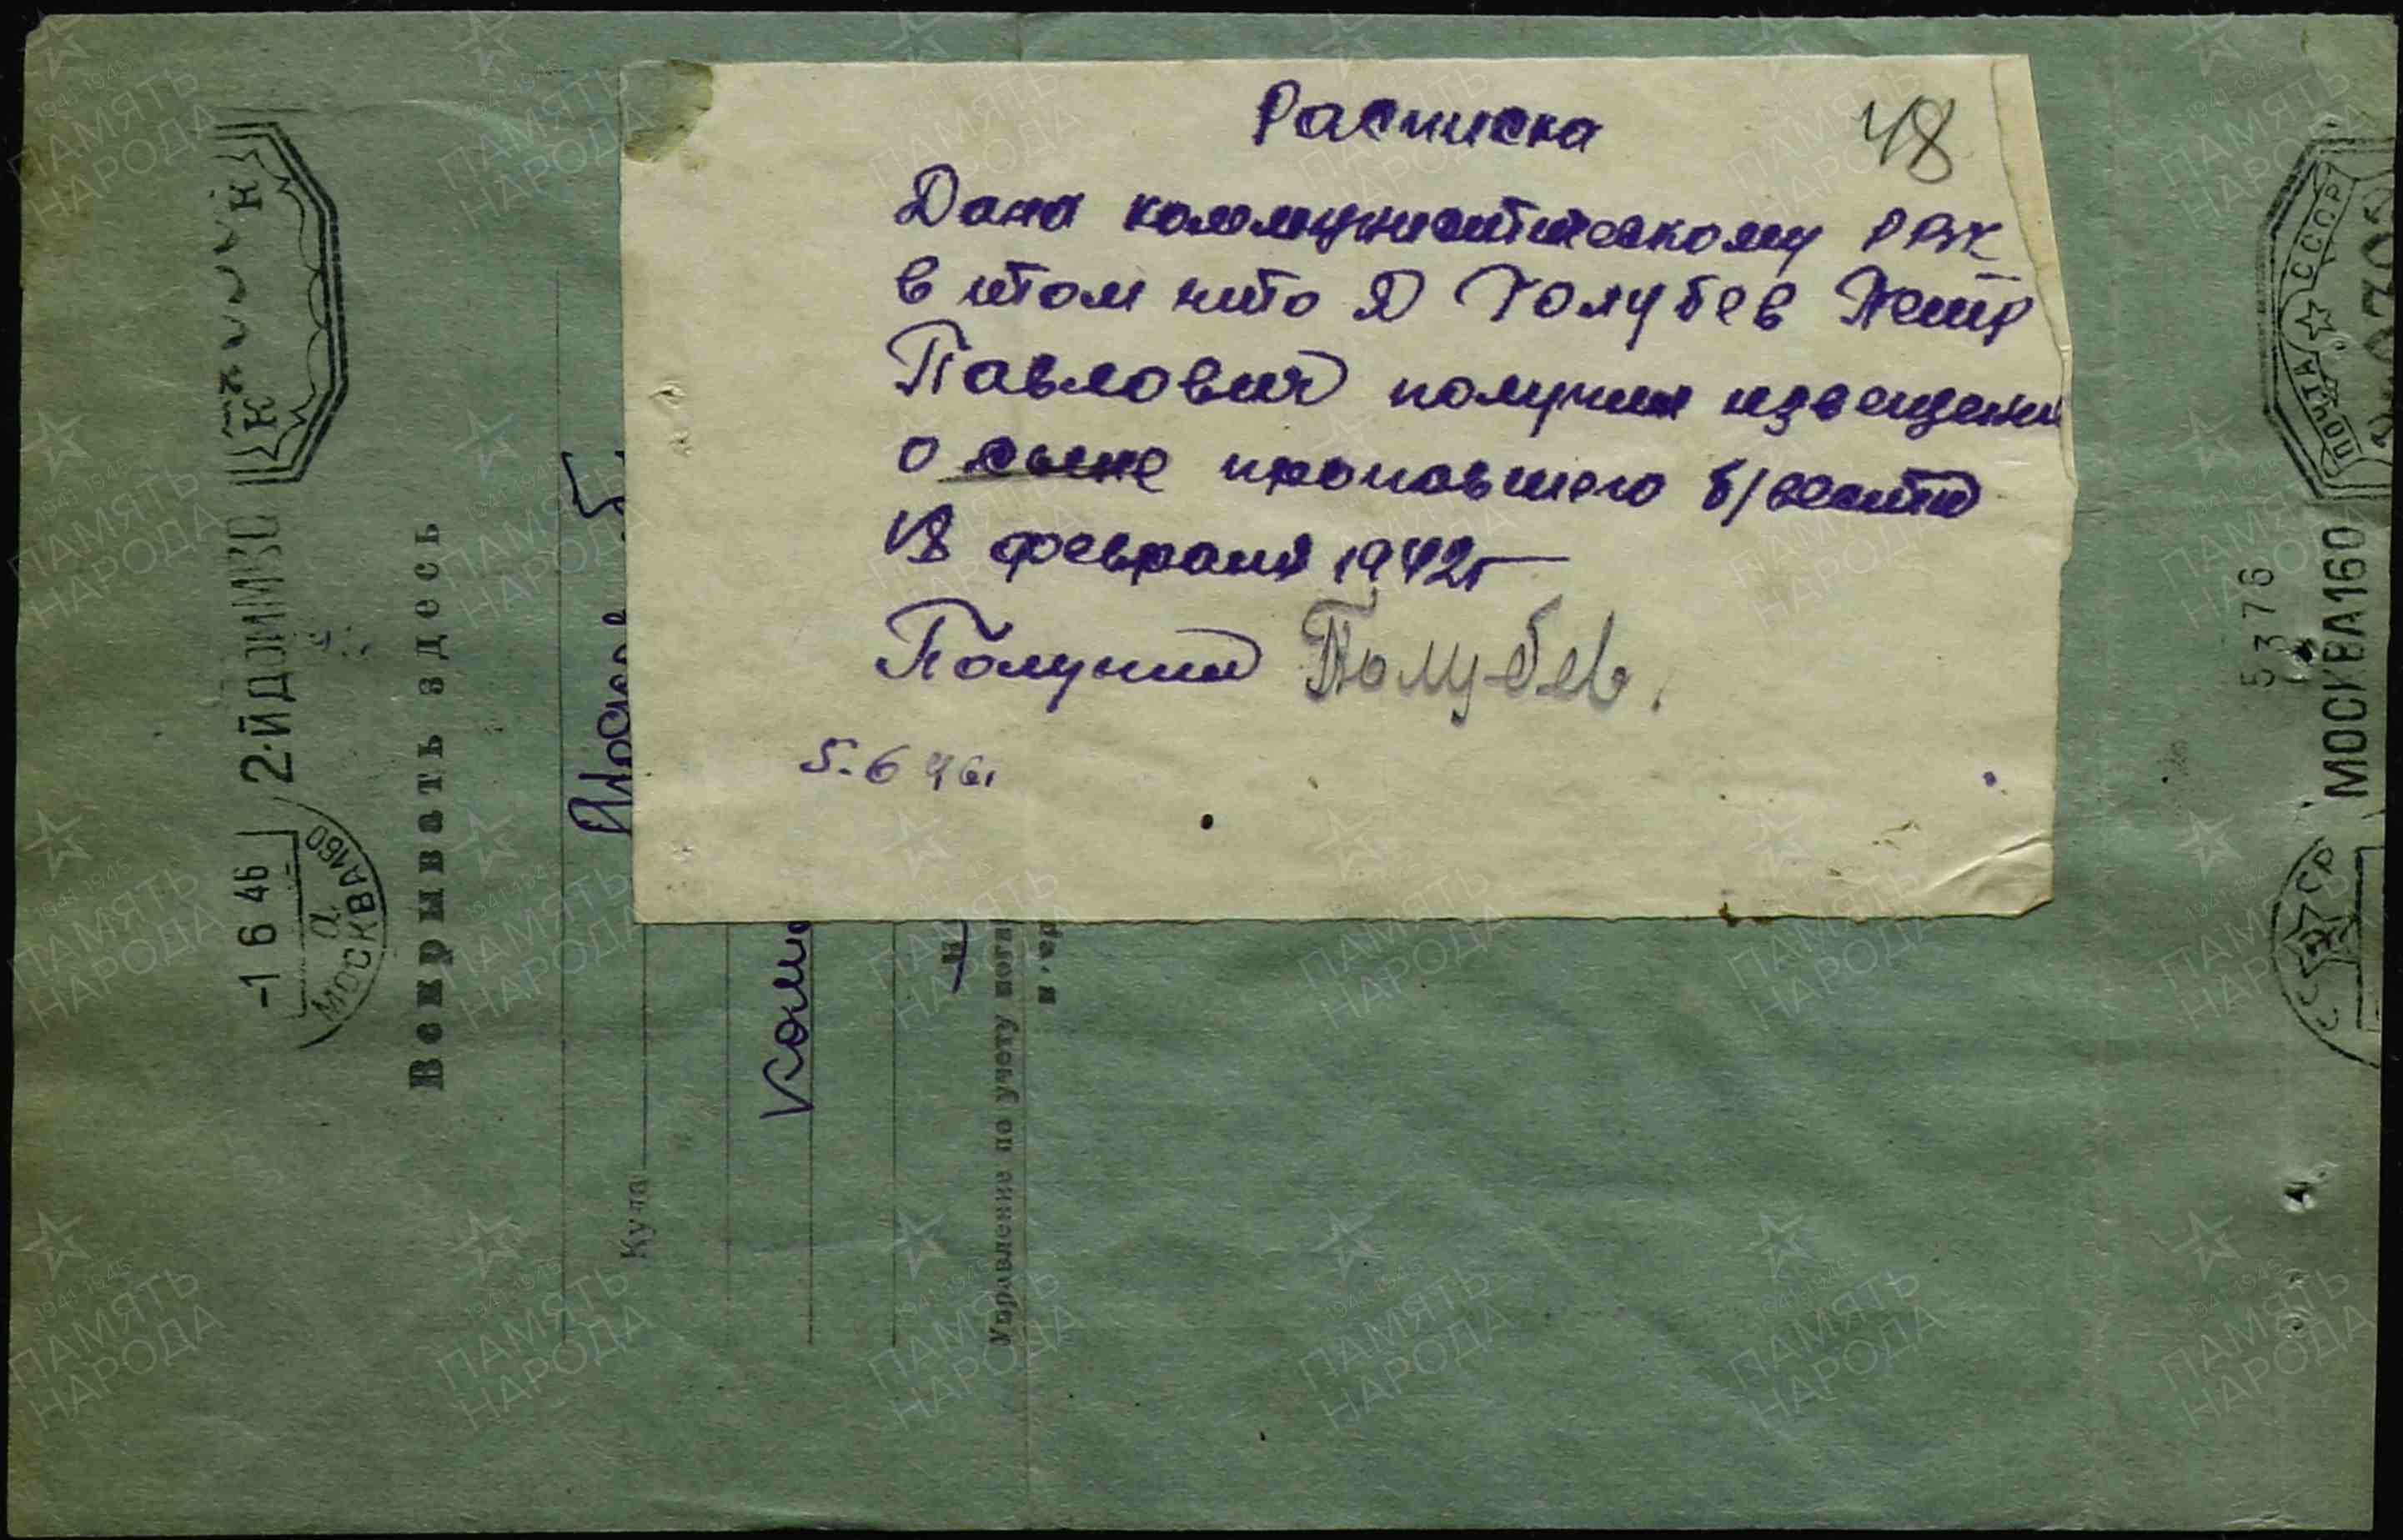 Расписка
48
Дана коммунистическому РВК
в том что Я Голубев Петр
Павлович получил извещени
о сыне пропавшего б/вести
в феврале 1942г
Получил Голубев.
5.6 46г
-1 6 46
2-Й ДОМ
МОСКВА 160
а
Вскрывать здесь
Куда
Комм
Управление по учету
ПОЧТА СССР
5376
МОСКВА 160
СССР
1941 1945
ПАМЯТЬ
НАРОДА